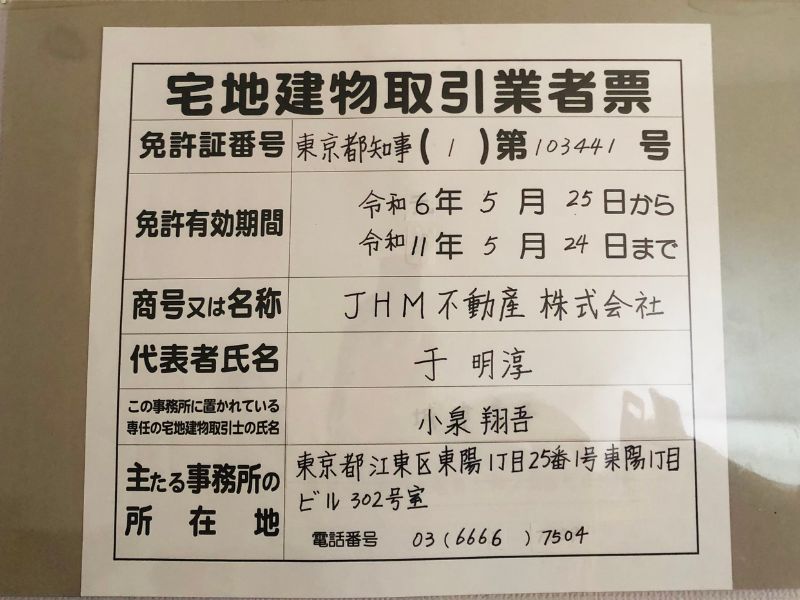 宅地建物取引業者票
免許証番号 東京都知事(1)第103441号
免許有効期間
令和6年5月25日から
令和11年5月24日まで
商号又は名称 JHM不動産 株式会社
代表者氏名 于 明淳
この事務所に置かれている
専任の宅地建物取引士の氏名
小泉 翔吾
主たる事務所の
所在地
東京都江東区東陽1丁目25番1号東陽1丁目
ビル302号室
電話番号 03(6666)7504